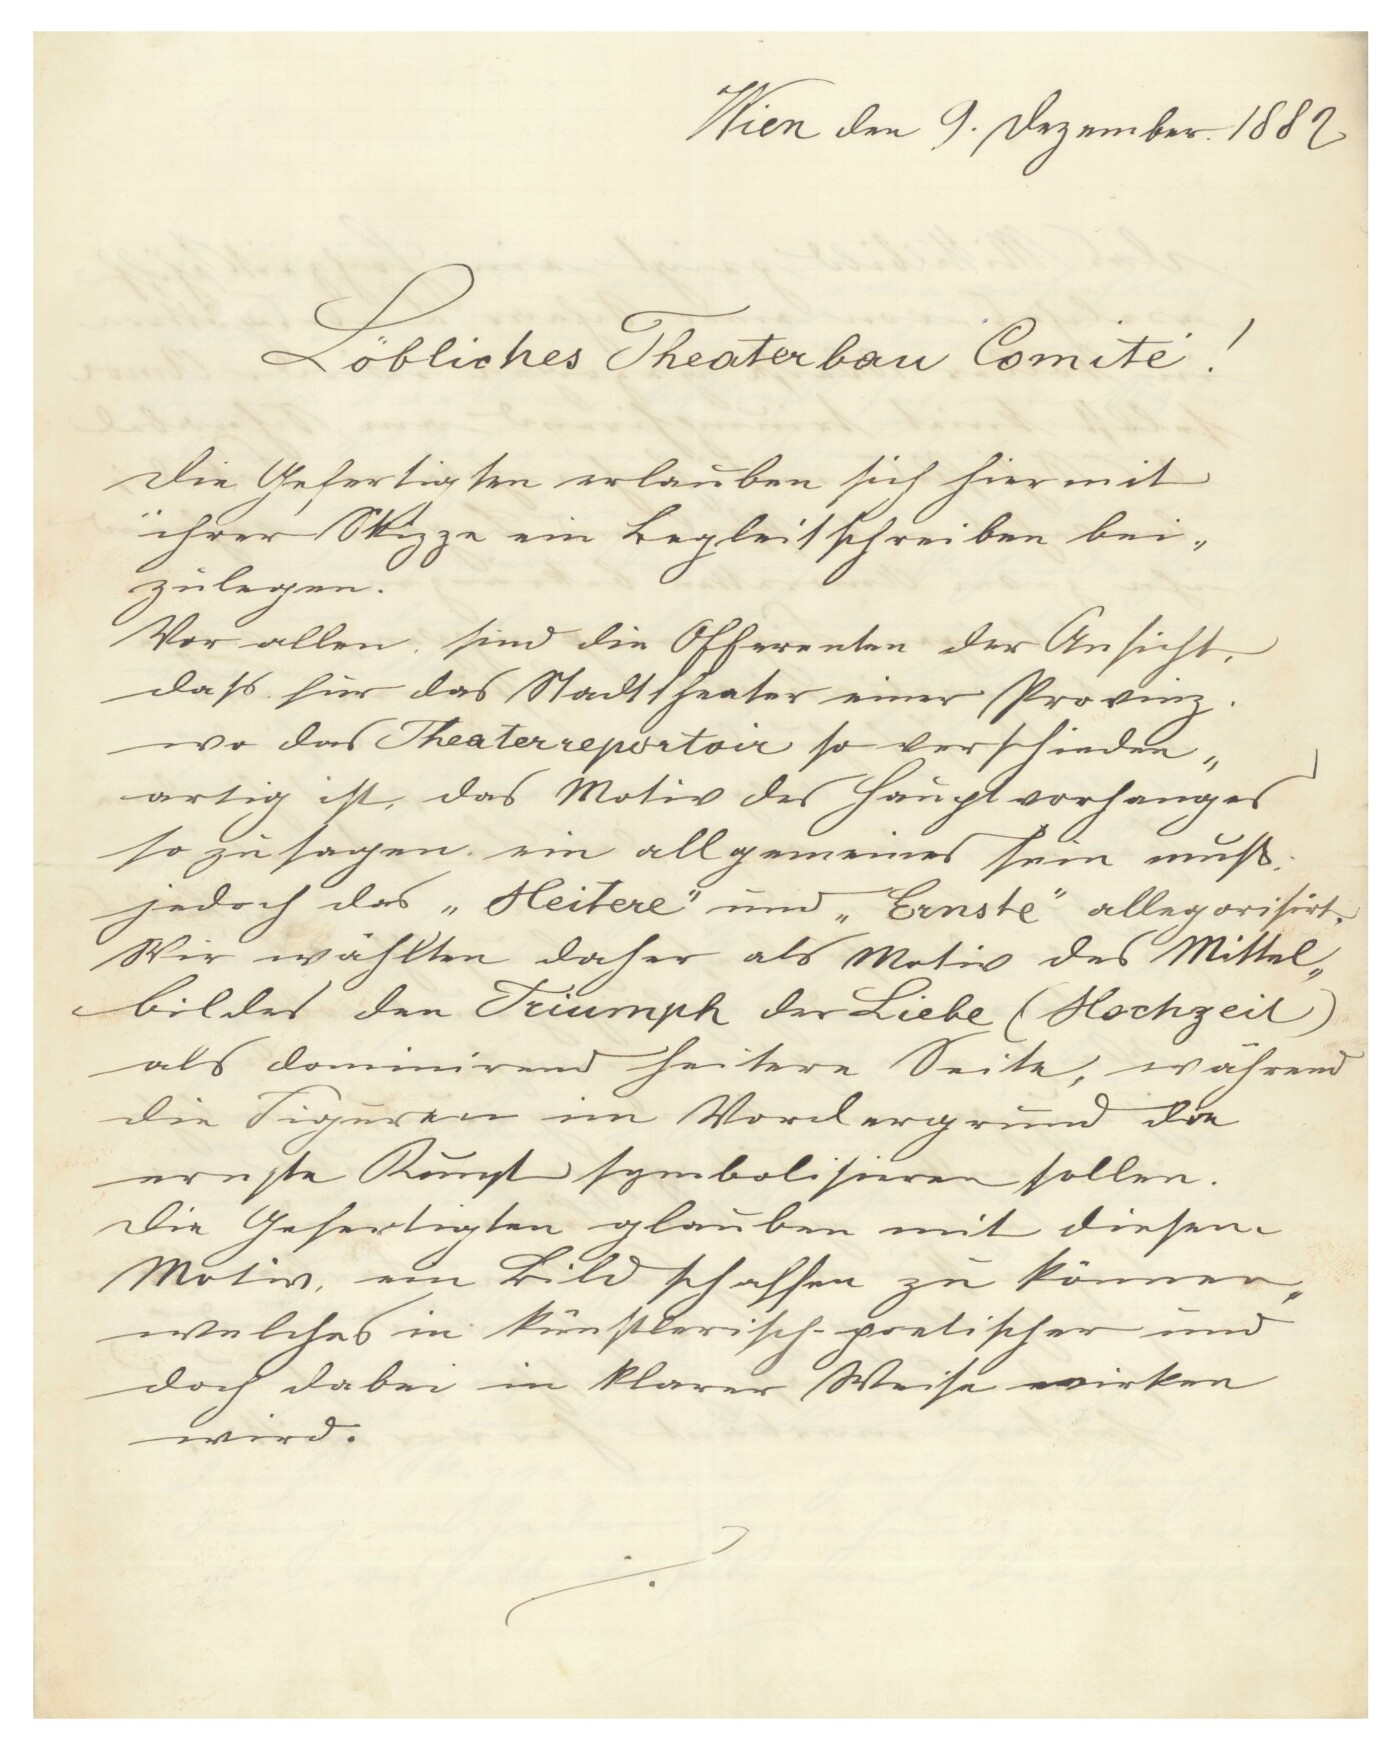 Wien den 9. Dezember. 1882
Löbliches Theaterbau Comité!
Die Gefertigten erlauben sich hiermit
ihrer Skizze ein Begleitschreiben bei„
zulegen.
Vor allen, sind die Offerenten der Ansicht,
daß für das Stadttheater einer Provinz,
wo das Theaterreportoir so verschieden„
artig ist, das Motiv des Hauptvorhanges
so zu sagen, ein allgemeines sein muß,
jedoch das „Heitere“ und „Ernste“ allegorisirt.
Wir wählten daher als Motiv des Mittel„
bildes den Triumph der Liebe (Hochzeit)
als dominirend heitere Seite, während
die Figuren im Vordergrund die
ernste Kunst symbolisieren sollen.
Die Gefertigten glauben mit diesen
Motiv, ein Bild schaffen zu können,
welches in künstlerisch-poetischer und
doch dabei in klarer Weise wirken
wird.
./.